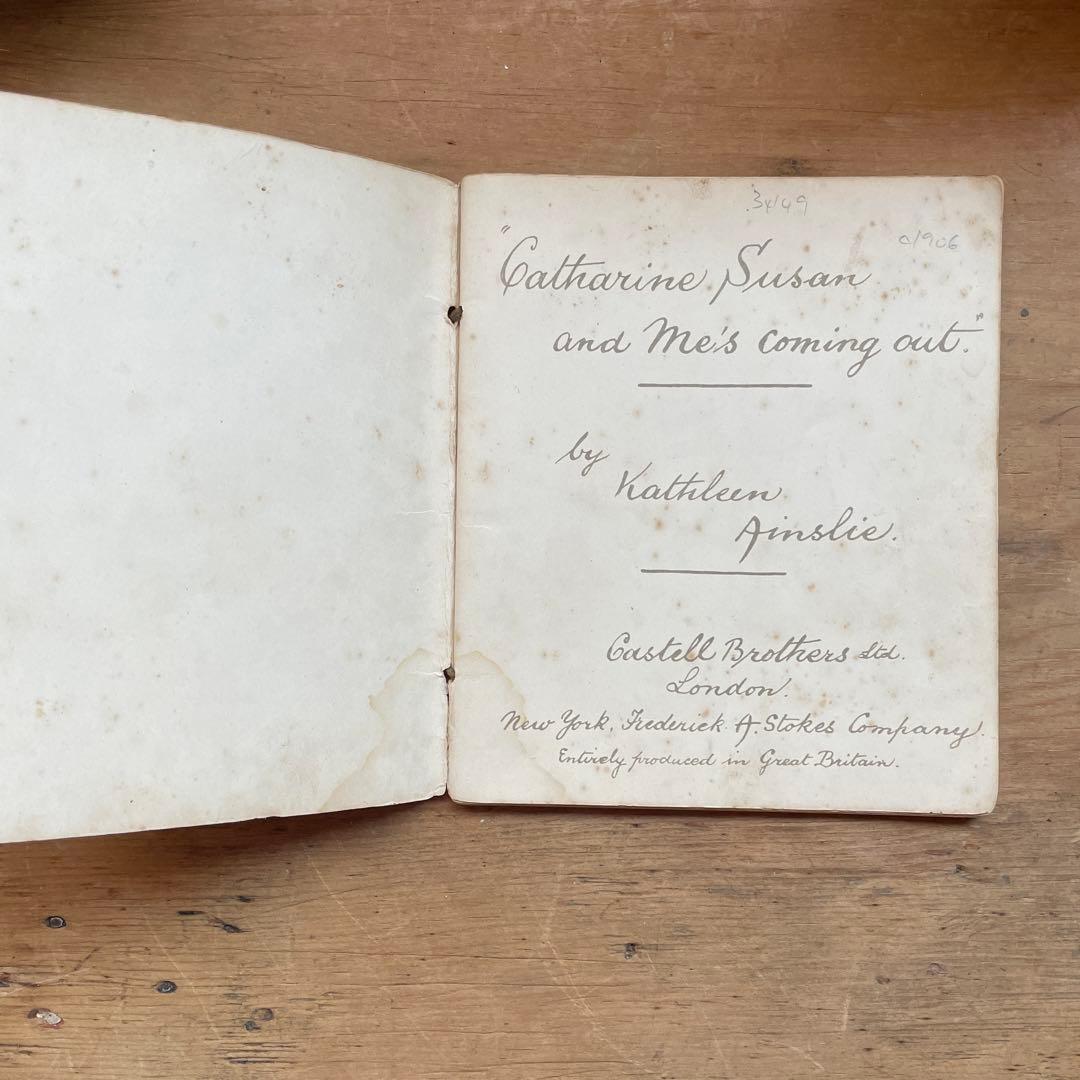 c1906
"Catharine Susan
and Me's coming out."
by
Kathleen
Ainslie.
Castell Brothers Ltd.
London.
New York, Frederick A. Stokes Company.
Entirely produced in Great Britain.